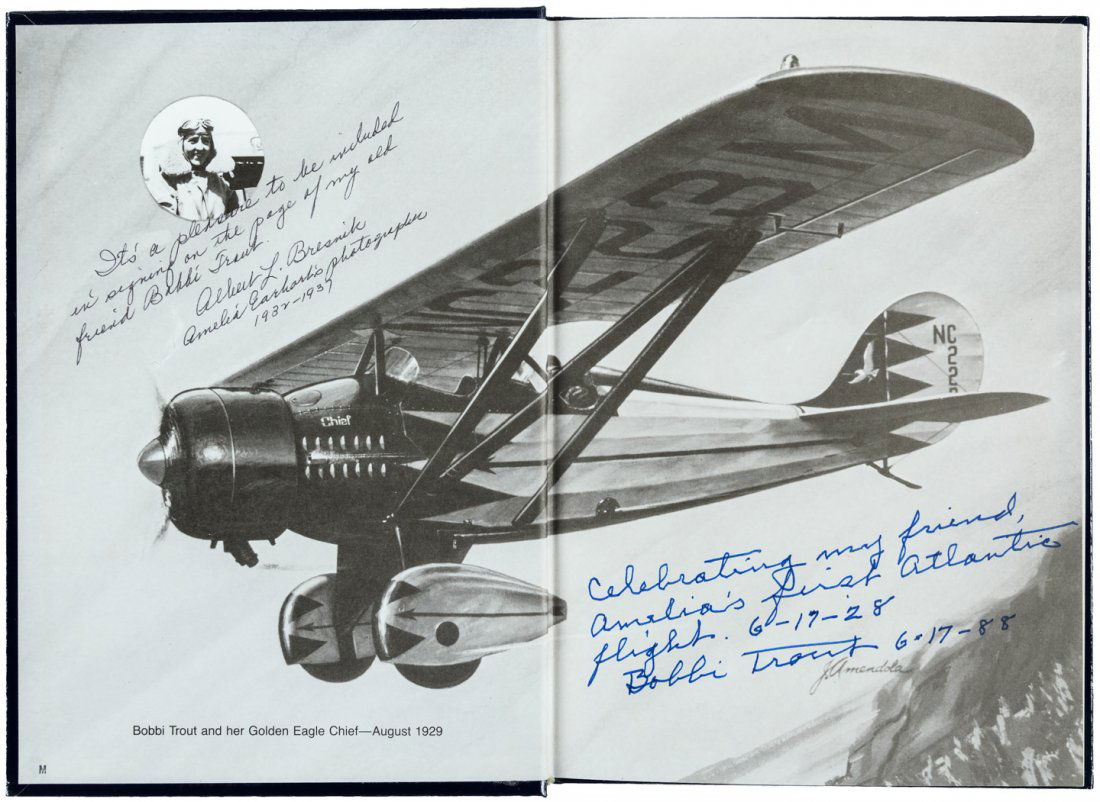 It's a pleasure to be included
in signing on the page of my old
friend Bobbi Trout.
Albert L. Bresnik
Amelia Earhart's photographer
1932-1937
Chief
NC
22
M
Bobbi Trout and her Golden Eagle Chief—August 1929
M
Celebrating my friend,
Amelia's first Atlantic
flight. 6-17-28
Bobbi Trout 6-17-88
J. Amendola